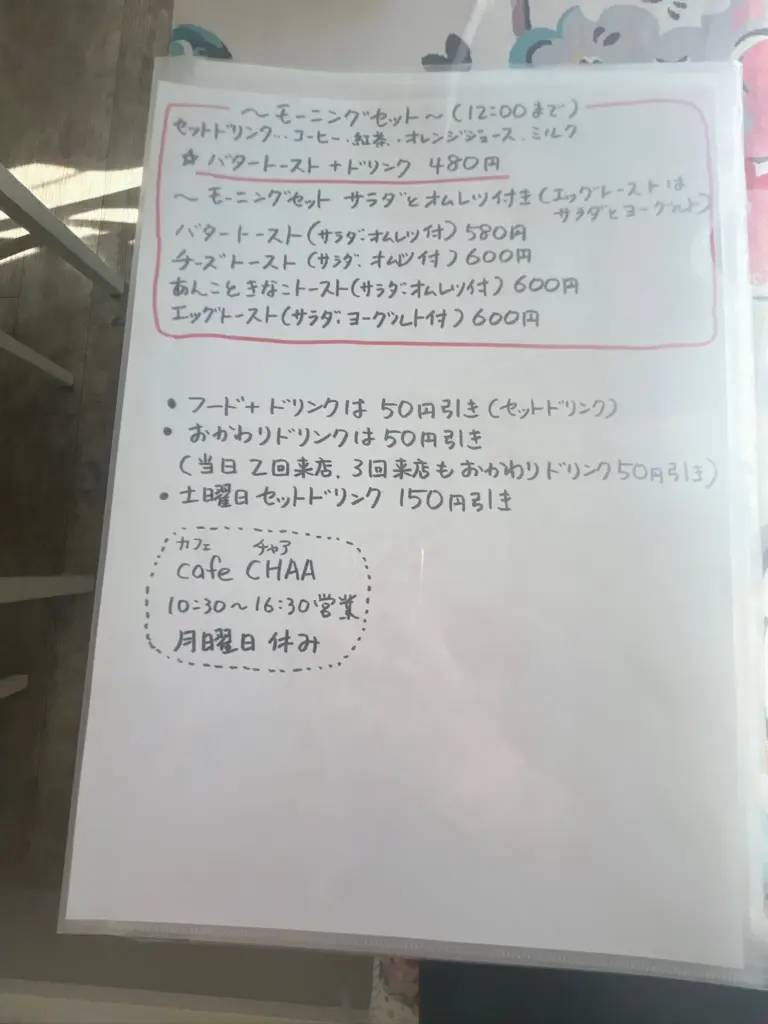 ～モーニングセット～(12:00まで)
セットドリンク…コーヒー・紅茶・オレンジジュース・ミルク
☆バタートースト+ドリンク 480円
～モーニングセット サラダとオムレツ付き(エッグトーストは
サラダとヨーグルト)
バタートースト(サラダ・オムレツ付)580円
チーズトースト(サラダ・オムレツ付)600円
あんこときなこトースト(サラダ・オムレツ付)600円
エッグトースト(サラダ・ヨーグルト付)600円
• フード+ドリンクは 50円引き(セットドリンク)
• おかわりドリンクは50円引き
(当日2回来店、3回来店もおかわりドリンク50円引き)
• 土曜日セットドリンク 150円引き
カフェ チャア
cafe CHAA
10:30～16:30営業
月曜日休み